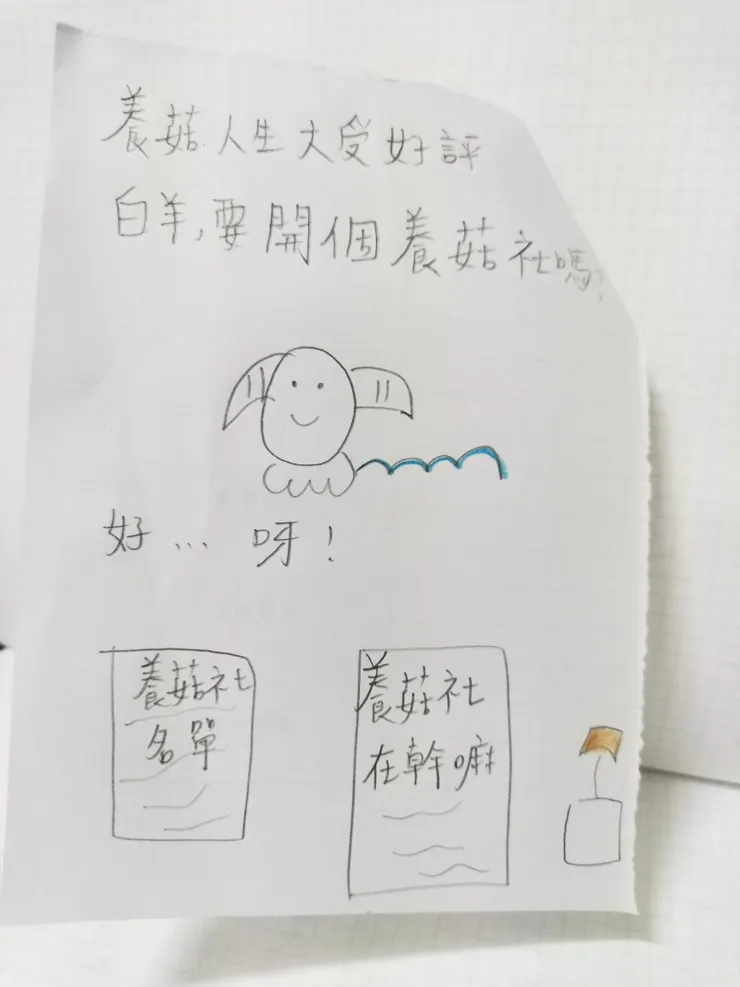 養菇人生大受好評
白羊,要開個養菇社嗎?
好... 呀!
養菇社
名單
養菇社
在幹嘛